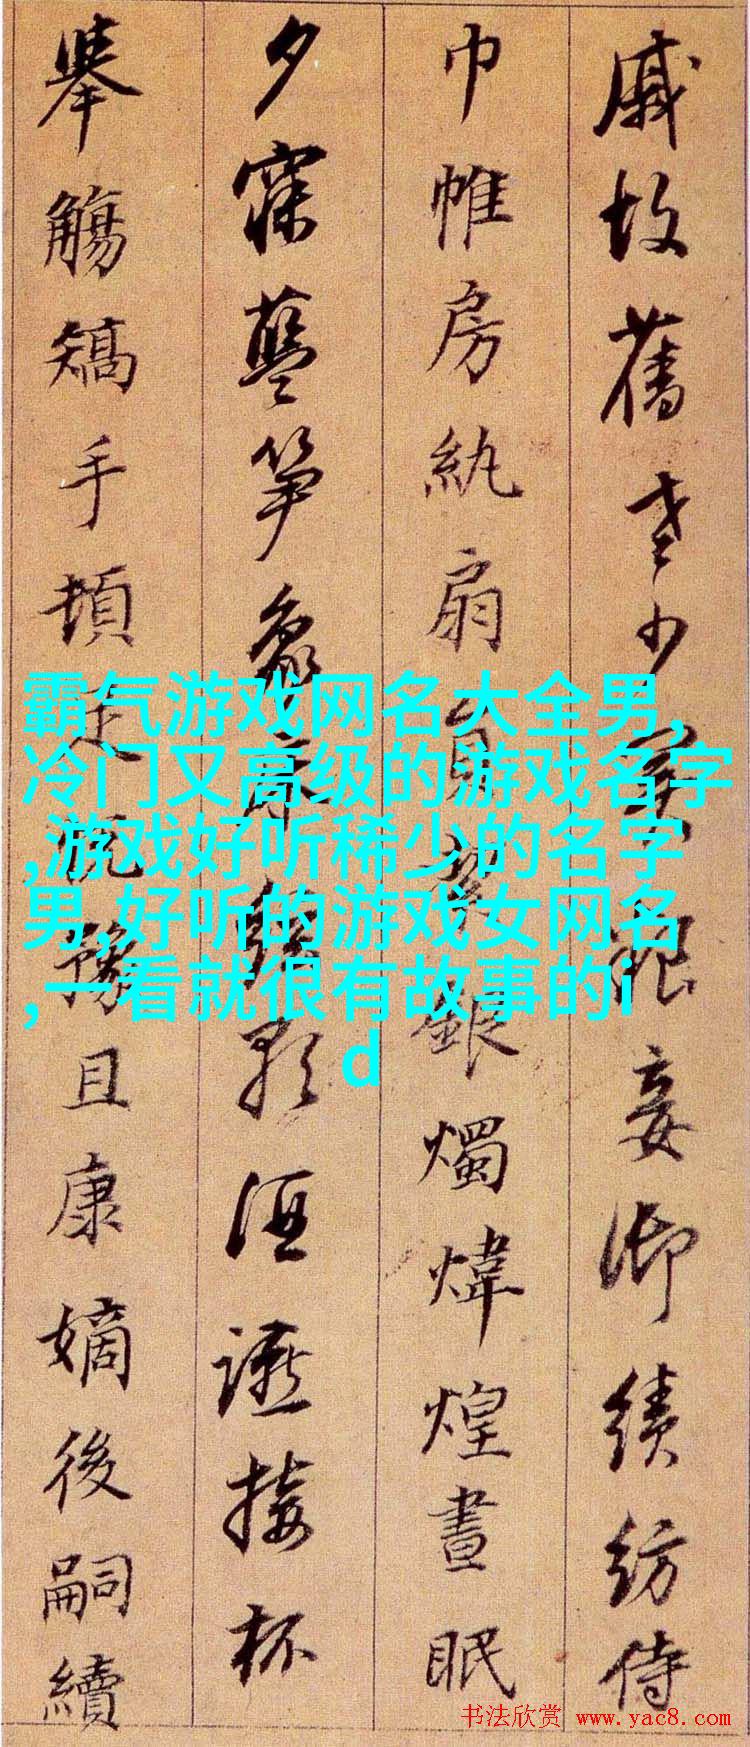 戚故舊老少異粮妾御績紡侍
巾帷房紈扇員銀燭煒煌晝眠
夕寐藍笋象床歌酒讌接杯
舉觴矯手頓足悅豫且康嫡後嗣續
霸气游戏网名大全男,
冷门又高级的游戏名字
,游戏好听稀少的名字
男,好听的游戏女网名
,一看就很有故事的i
d
书法欣赏 www.yac8.com